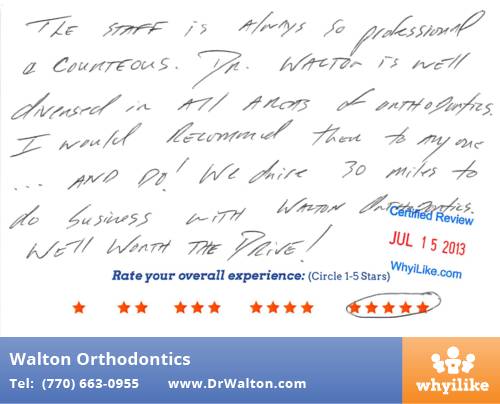 The STAFF is Always so professional
& COURTEOUS. DR. WALTON is well
diversed in All AREAS of orthodontics.
I would Recommend them to any one
... AND DO! We drive 30 miles to
do business with WALTON Orthodontics.
Well Worth THE DRIVE!
Certified Review
JUL 15 2013
WhyiLike.com
Rate your overall experience: (Circle 1-5 Stars)
Walton Orthodontics
Tel: (770) 663-0955 www.DrWalton.com
whyilike